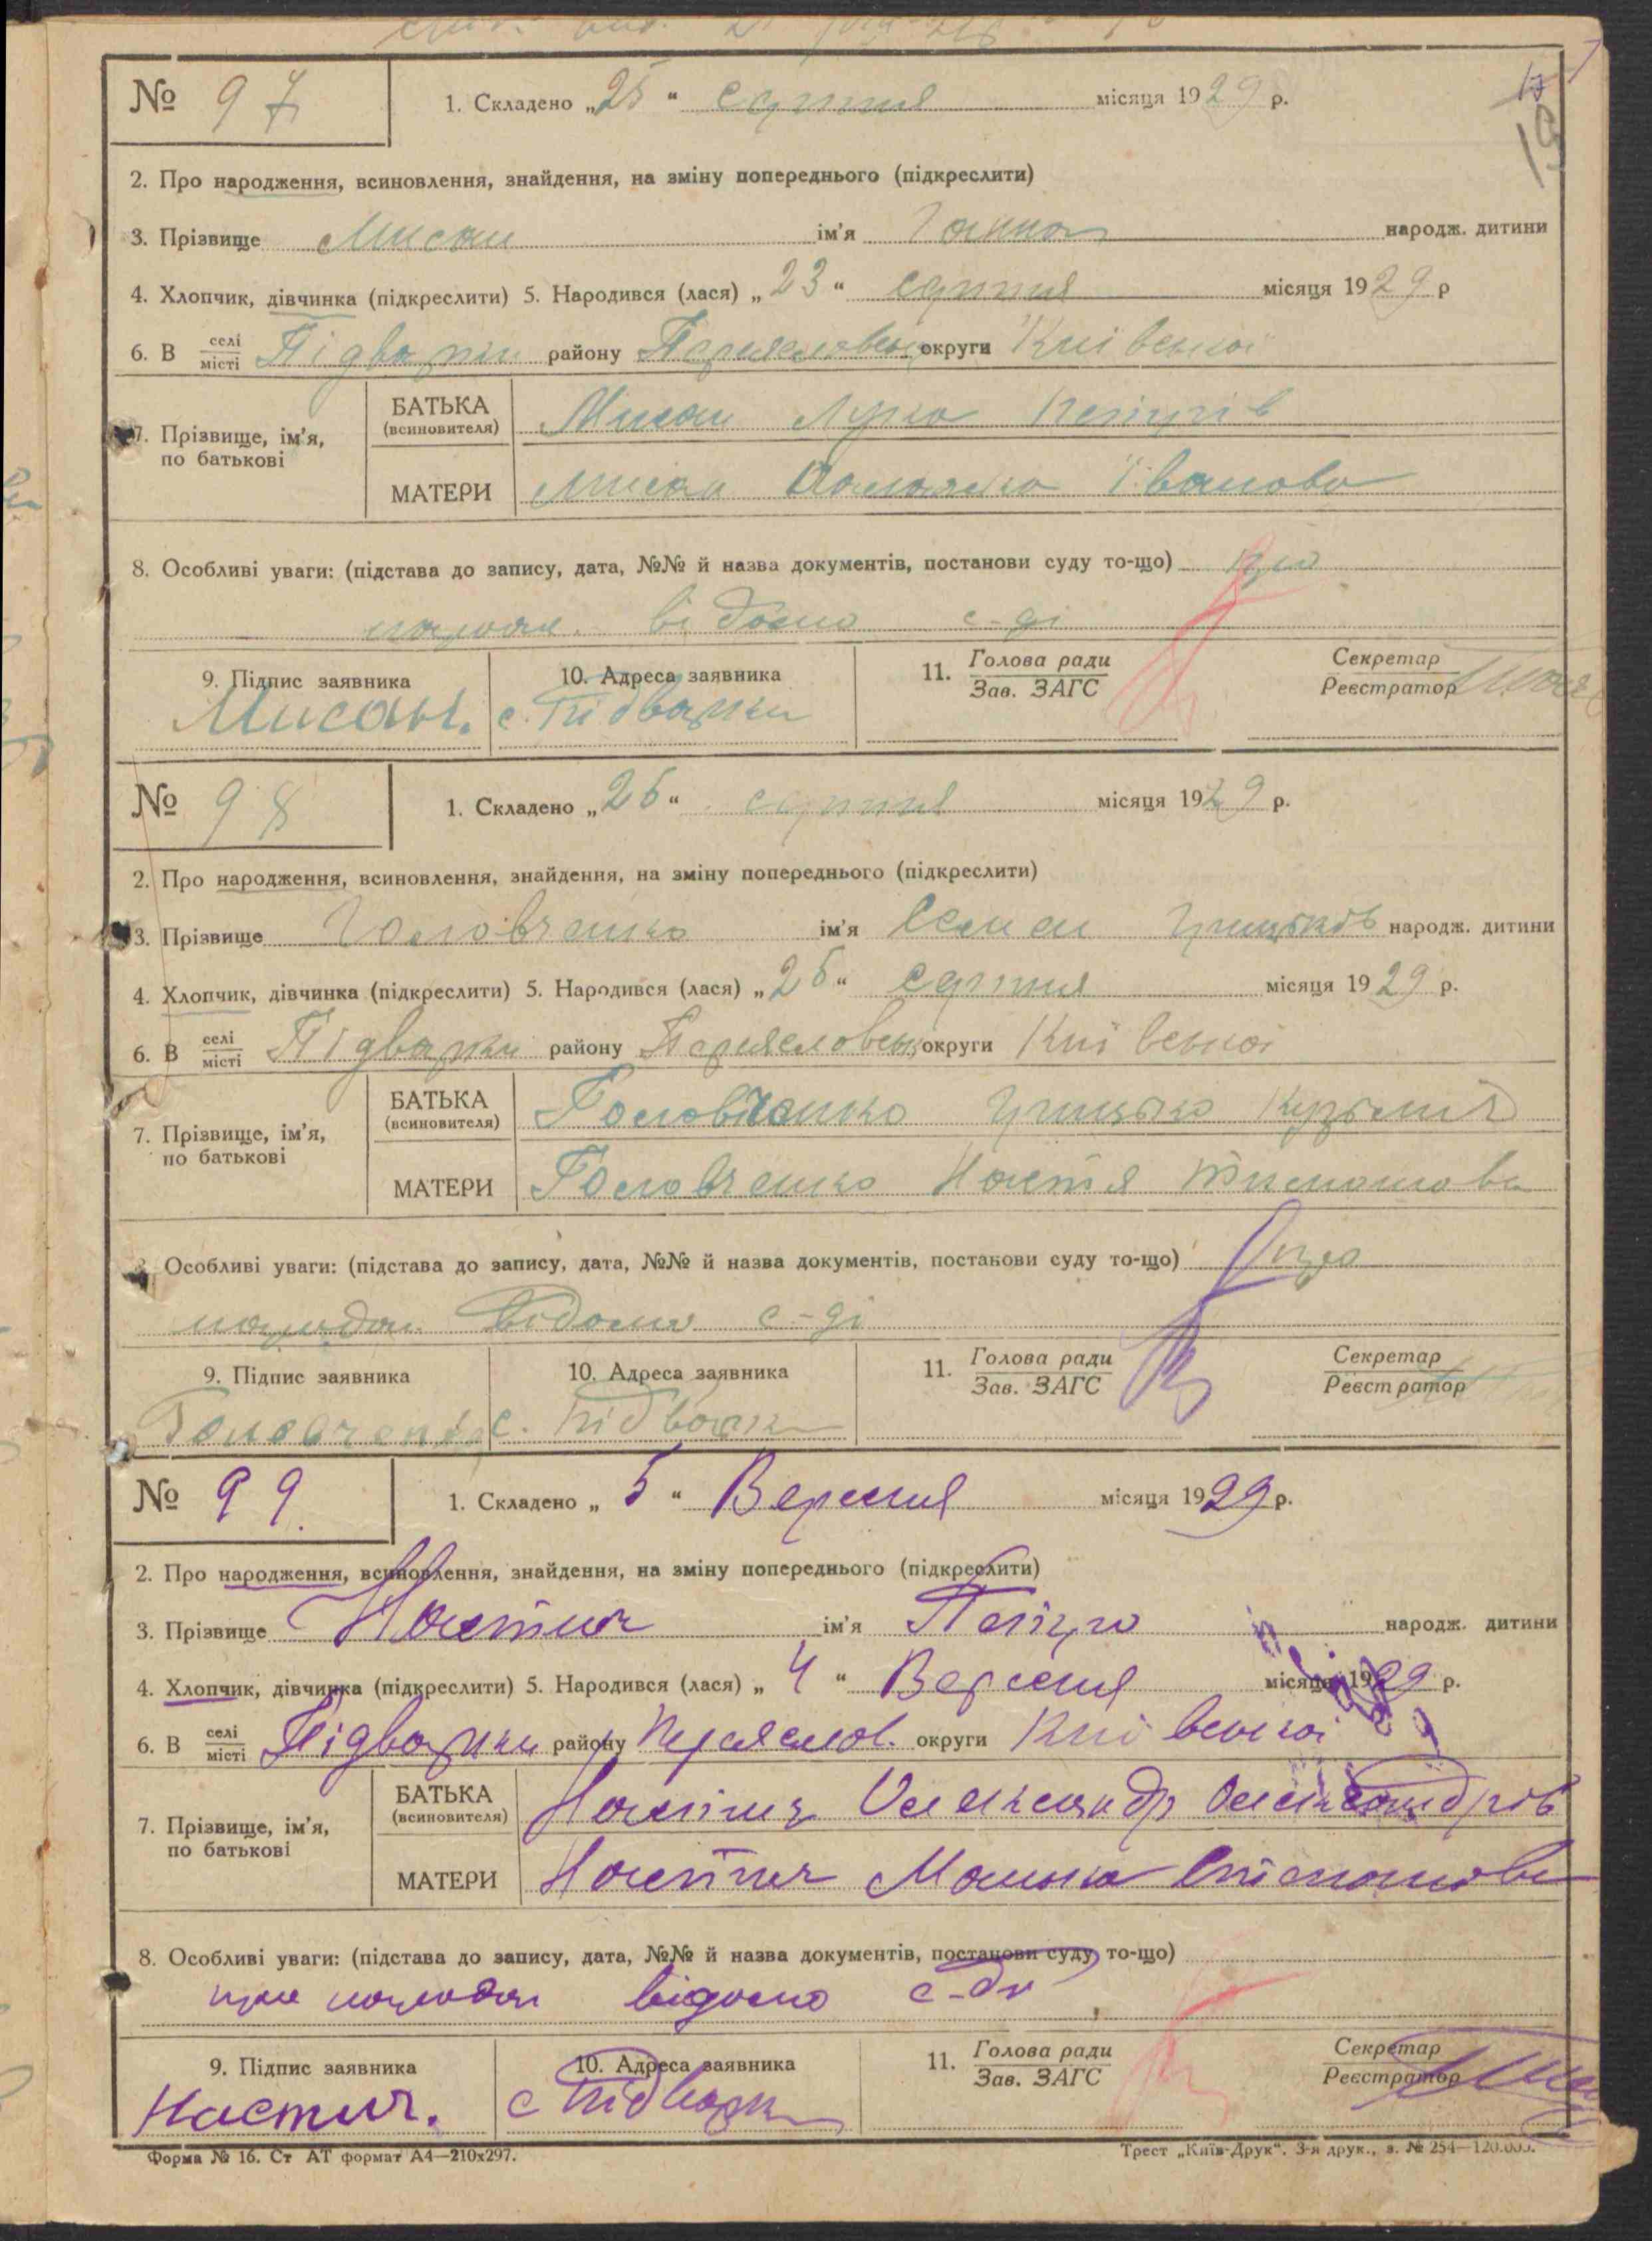 № 97 1. Складено „25“ серпня місяця 1929 р.
2. Про народження, всиновлення, знайдення, на зміну попереднього (підкреслити)
3. Прізвище Мисан ім’я Ганна народж. дитини
4. Хлопчик, дівчинка (підкреслити) 5. Народився (лася) „23“ серпня місяця 1929 р
6. В селі місті Підварки району Переяславськ округи Київської
7. Прізвище, ім’я, по батькові
БАТЬКА (всиновителя) Мисан Лука Петрів
МАТЕРИ Мисан Іванова
8. Особливі уваги: (підстава до запису, дата, №№ й назва документів, постанови суду то-що) про
народж. відомо с-ді
9. Підпис заявника 10. Адреса заявника 11. Голова ради Зав. ЗАГС Секретар Реєстратор
Мисан. с. Підварки
№ 98 1. Складено „26“ серпня місяця 1929 р.
2. Про народження, всиновлення, знайдення, на зміну попереднього (підкреслити)
3. Прізвище Головченко ім’я Семен Грицьків народж. дитини
4. Хлопчик, дівчинка (підкреслити) 5. Народився (лася) „26“ серпня місяця 1929 р.
6. В селі місті Підварки району Переяславськ округи Київської
7. Прізвище, ім’я, по батькові
БАТЬКА (всиновителя) Головченко Грицько Кузьмич
МАТЕРИ Головченко Настя Тимошова
8. Особливі уваги: (підстава до запису, дата, №№ й назва документів, постанови суду то-що) про
народж. відомо с-ді
9. Підпис заявника 10. Адреса заявника 11. Голова ради Зав. ЗАГС Секретар Реєстратор
Головченко с. Підварки
№ 99. 1. Складено „5“ Вересня місяця 1929 р.
2. Про народження, всиновлення, знайдення, на зміну попереднього (підкреслити)
3. Прізвище Настич ім’я Петро народж. дитини
4. Хлопчик, дівчинка (підкреслити) 5. Народився (лася) „4“ Вересня місяця 1929 р.
6. В селі місті Підварки району Переяслав. округи Київської
7. Прізвище, ім’я, по батькові
БАТЬКА (всиновителя) Настич Олександр Олександрів
МАТЕРИ Настич Манька Степанова
8. Особливі уваги: (підстава до запису, дата, №№ й назва документів, постанови суду то-що)
про народж відомо с-ді
9. Підпис заявника 10. Адреса заявника 11. Голова ради Зав. ЗАГС Секретар Реєстратор
Настич. с Підварки
Форма № 16. Ст АТ формат А4—210х297. Трест „Київ-Друк“. 3-я друк., з. № 254—120.000.